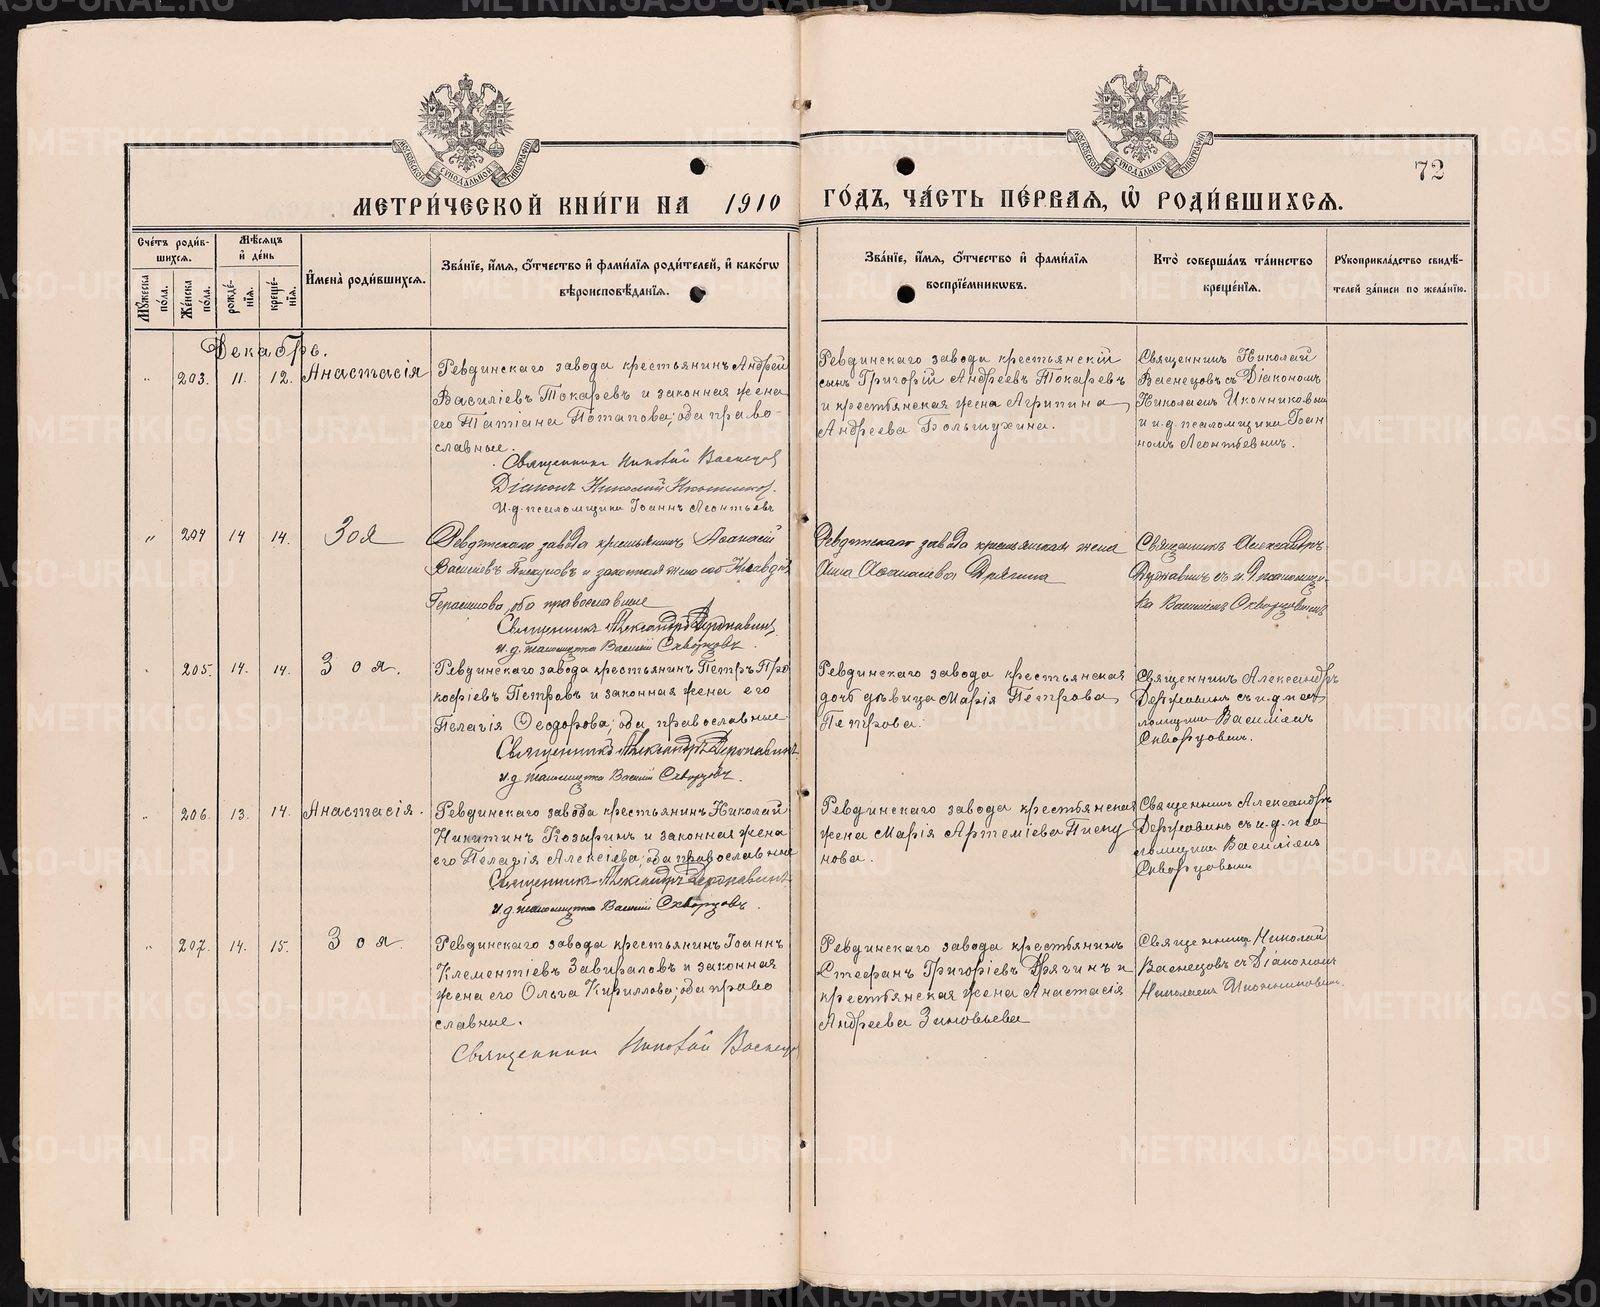 72
МЕТРИ́ЧЕСКОЙ КНИ́ГИ НА 1910 ГО́ДЪ, ЧА́СТЬ ПЕ́РВАѦ, Ѡ҆ РОДИ́ВШИХСѦ.
Сче́тъ роди́в-
шихсѧ.
Мѣ́сѧцъ
и҆ де́нь
Мꙋ́жеска
по́ла.
Же́нска
по́ла.
рожде́-
нїѧ.
креще́-
нїѧ.
И҆мена̀ роди́вшихсѧ.
Зва́нїе, и҆́мѧ, ѻ҆́тчество и҆ фами́лїѧ роди́телей, и҆ како́гѡ
вѣроисповѣ́данїѧ.
Зва́нїе, и҆́мѧ, ѻ҆́тчество и҆ фами́лїѧ
воспрїе́мникѡвъ.
Кто̀ соверша́лъ та́инство
креще́нїѧ.
Рꙋкоприкла́дство свидѣ́-
телей за́писи по жела́нїю.
Декабрь.
" 203. 11. 12. Анастасія
Ревдинскаго завода крестьянинъ Андрей
Василіевъ Токаревъ и законная жена
его Татіана Потапова; оба право-
славные.
Священникъ Николай Васнецов
Діаконъ Николай Иконников.
И. д. псаломщика Іоаннъ Леонтьевъ
Ревдинскаго завода крестьянскій
сынъ Григорій Андреевъ Токаревъ
и крестьянская жена Агрипина
Андреева Большухина.
Священникъ Николай
Васнецовъ съ Діакономъ
Николаемъ Иконниковым
и и. д. псаломщика Іоан
номъ Леонтьевымъ.
" 204 14 14. Зоя
Ревдинскаго завода крестьянинъ Аѳанасій
Василіевъ Пискуновъ и законная жена его Клавдія
Герасимова, оба православные
Священникъ Александръ Державинъ
и. д. псаломщика Василій Скворцовъ.
Ревдинскаго завода крестьянская жена
Анна Аѳанасіева Дрягина
Священникъ Александръ
Державинъ съ и. д. псаломщи-
ка Василіемъ Скворцовымъ
" 205. 14. 14. Зоя.
Ревдинскаго завода крестьянинъ Петръ Про
кофіевъ Петровъ и законная жена его
Пелагія Ѳеодорова; оба православные
Священникъ Александръ Державинъ
и. д. псаломщика Василій Скворцовъ.
Ревдинскаго завода крестьянская
дочь дѣвица Марія Петрова
Петрова.
Священникъ Александръ
Державинъ съ и. д. пса
ломщика Василіемъ
Скворцовым.
" 206. 13. 14. Анастасія.
Ревдинскаго завода крестьянинъ Николай
Никитинъ Козыринъ и законная жена
его Пелагія Алексіева; оба православные
Священникъ Александръ Державинъ
и. д. псаломщика Василій Скворцовъ.
Ревдинскаго завода крестьянская
жена Марія Артеміева Писку
нова.
Священникъ Александръ
Державинъ съ и. д. пса
ломщика Василіемъ
Скворцовым
" 207. 14. 15. Зоя.
Ревдинскаго завода крестьянинъ Іоаннъ
Клементіевъ Завираловъ и законная
жена его Ольга Кириллова; оба право
славные.
Священникъ Николай Васнецо
Ревдинскаго завода крестьянинъ
Стефанъ Григоріевъ Дрягинъ и
крестьянская жена Анастасія
Андреева Зиновьева
Священникъ Николай
Васнецовъ съ Діакономъ
Николаемъ Иконниковым.